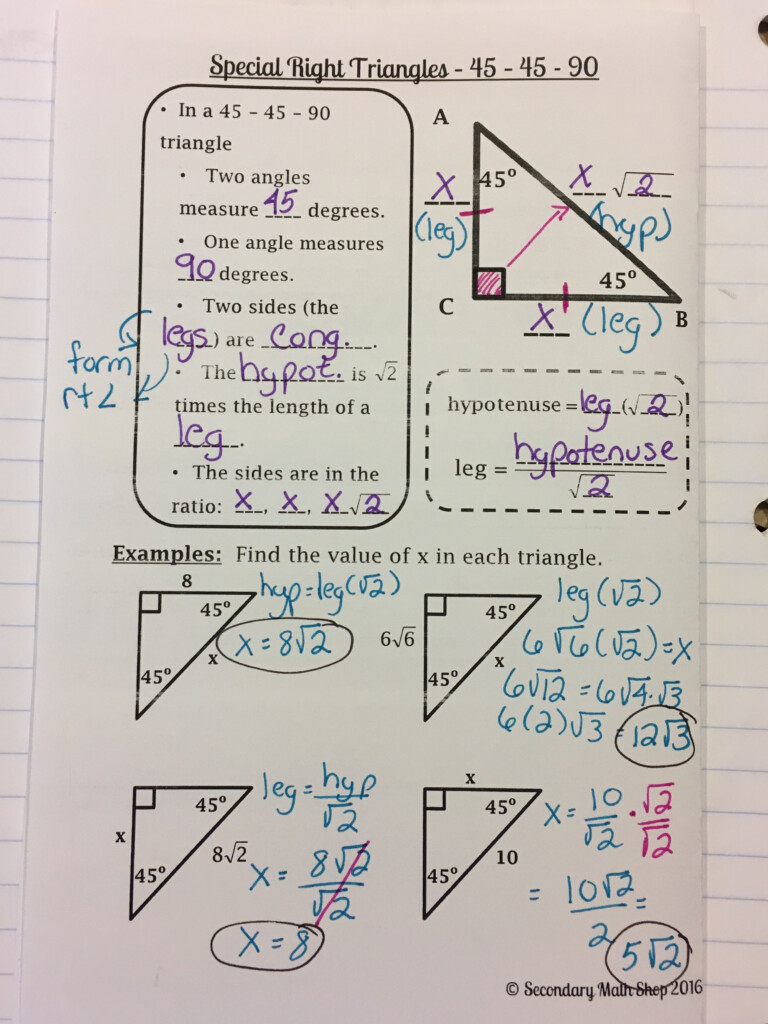 Special Right Triangles - 45 - 45 - 90
• In a 45 – 45 – 90
triangle
• Two angles
measure 45 degrees.
• One angle measures
90 degrees.
• Two sides (the
legs) are cong.
form
rt∠
• The hypot. is √2
times the length of a
leg.
• The sides are in the
ratio: x, x, x√2
A
45°
x
(leg)
x √2
(hyp)
45°
C
x (leg)
B
hypotenuse = leg (√2)
leg = hypotenuse
√2
Examples: Find the value of x in each triangle.
8
45°
45°
x
hyp=leg(√2)
x = 8√2
6√6
45°
45°
x
leg(√2)
6√6(√2)=x
6√12 = 6√4·√3
6(2)√3 = 12√3
x
45°
45°
8√2
leg = hyp
√2
x = 8√2
√2
x = 8
x
45°
45°
10
x = 10 · √2
√2 √2
= 10√2 =
2
5√2
© Secondary Math Shop 2016